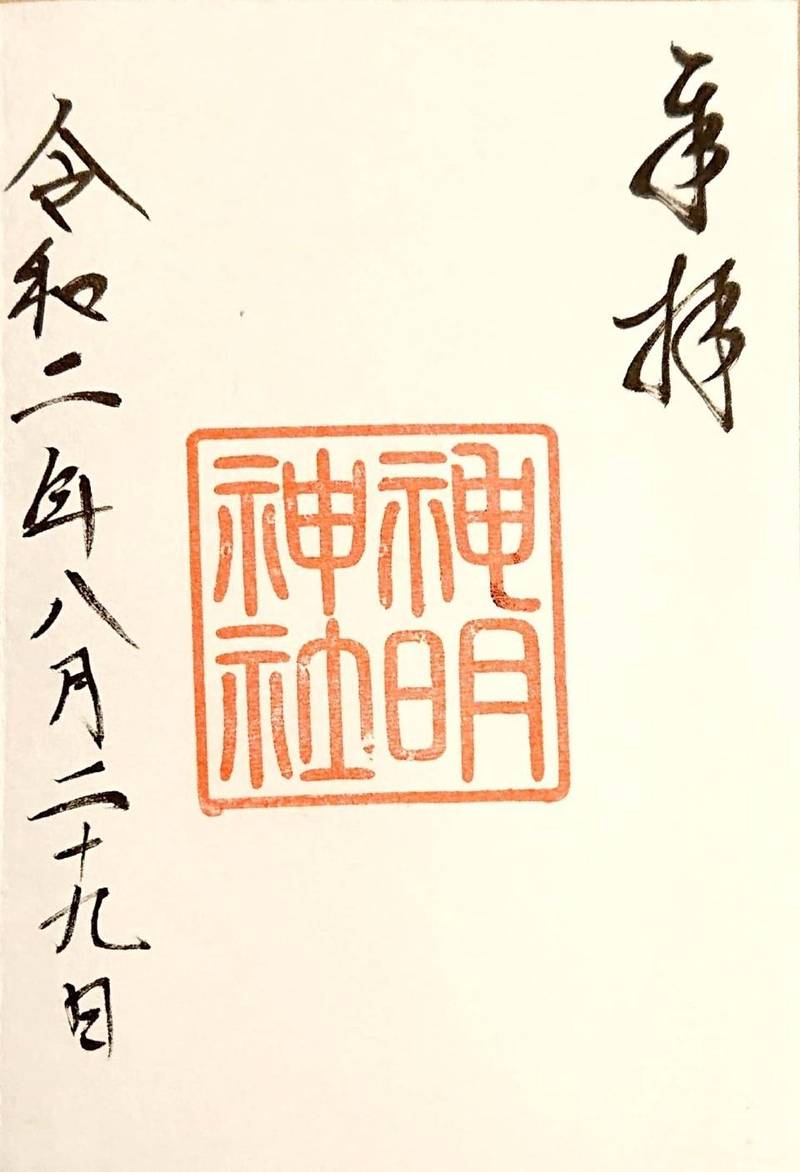 奉拝
神明
神社
令和二年八月二十九日